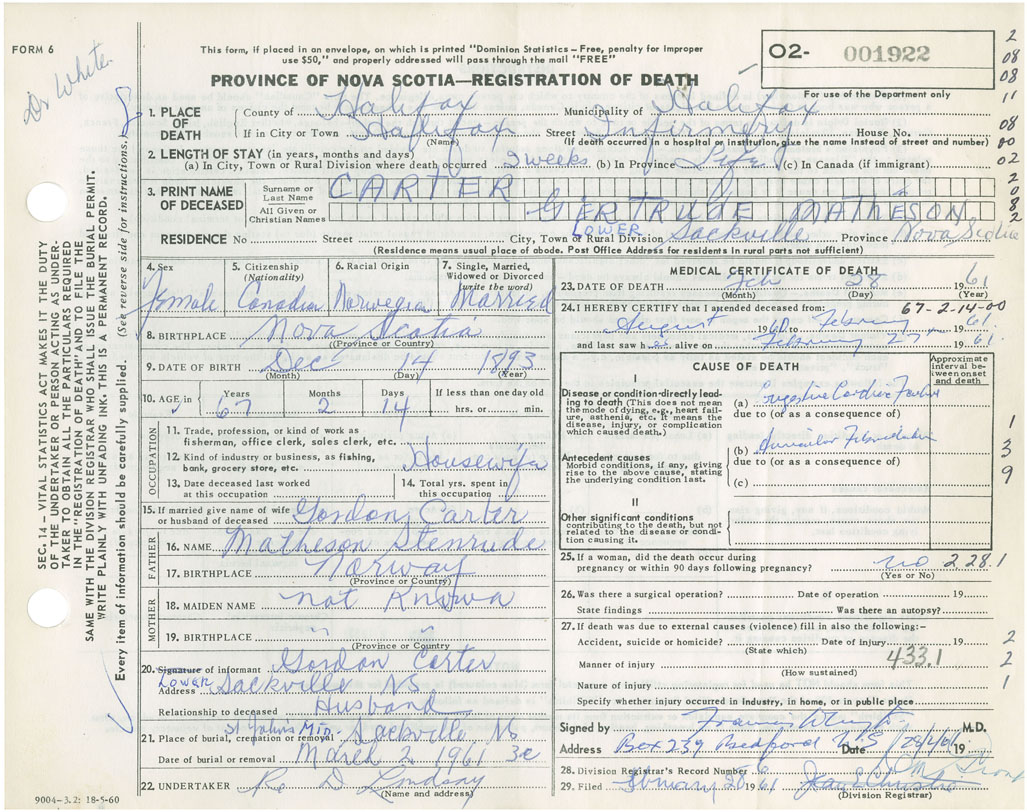 FORM 6
Dr White
This form, if placed in an envelope, on which is printed "Dominion Statistics – Free, penalty for improper
use $50," and properly addressed will pass through the mail "FREE"
O2- 001922
For use of the Department only
PROVINCE OF NOVA SCOTIA—REGISTRATION OF DEATH
1. PLACE OF DEATH
County of Halifax Municipality of Halifax
If in City or Town Halifax Street Infirmary House No.
(Name) (If death occurred in a hospital or institution, give the name instead of street and number)
2. LENGTH OF STAY (in years, months and days)
(a) In City, Town or Rural Division where death occurred 2 weeks (b) In Province Life (c) In Canada (if immigrant)
3. PRINT NAME OF DECEASED
Surname or Last Name CARTER
All Given or Christian Names GERTRUDE MATHESON
LOWER
RESIDENCE No Street City, Town or Rural Division Sackville Province Nova Scotia
(Residence means usual place of abode. Post Office Address for residents in rural parts not sufficient)
4. Sex Female
5. Citizenship (Nationality) Canadian
6. Racial Origin Norwegian
7. Single, Married, Widowed or Divorced (write the word) Married
8. BIRTHPLACE Nova Scotia
(Province or Country)
9. DATE OF BIRTH Dec 14 1893
(Month) (Day) (Year)
10. AGE in Years 67 Months 2 Days 14 If less than one day old hrs. or min.
OCCUPATION
11. Trade, profession, or kind of work as
fisherman, office clerk, sales clerk, etc.
12. Kind of industry or business, as fishing,
bank, grocery store, etc. Housewife
13. Date deceased last worked
at this occupation
14. Total yrs. spent in
this occupation
15. If married give name of wife
or husband of deceased Gordon Carter
FATHER
16. NAME Matheson Stenrude
17. BIRTHPLACE Norway
(Province or Country)
MOTHER
18. MAIDEN NAME not Known
19. BIRTHPLACE " "
(Province or Country)
20. Signature of informant Gordon Carter
Lower
Address Sackville NS
Relationship to deceased Husband
St John's
21. Place of burial, cremation or removal Sackville NS
Date of burial or removal March 2 1961
22. UNDERTAKER R. D. Lindsay
(Name and address)
9004-3.2: 18-5-60
MEDICAL CERTIFICATE OF DEATH
23. DATE OF DEATH Feb 28 1961
(Month) (Day) (Year)
24. I HEREBY CERTIFY that I attended deceased from:
67-2-14-00
August 1960 to February 1961
and last saw h er alive on February 27 1961
CAUSE OF DEATH
Approximate interval between onset and death
I
Disease or condition directly leading to death (This does not mean the mode of dying, e.g., heart failure, asthenia, etc. It means the disease, injury, or complication which caused death.)
(a) Congestive Cardiac Failure
due to (or as a consequence of)
Antecedent causes
Morbid conditions, if any, giving rise to the above cause, stating the underlying condition last.
(b) Auricular Fibrillation
due to (or as a consequence of)
(c)
II
Other significant conditions
contributing to the death, but not related to the disease or condition causing it.
25. If a woman, did the death occur during
pregnancy or within 90 days following pregnancy? no 2 28.1
(Yes or No)
26. Was there a surgical operation? Date of operation 19
State findings Was there an autopsy?
27. If death was due to external causes (violence) fill in also the following:–
Accident, suicide or homicide? Date of injury 19
(State which)
433.1
Manner of injury
(How sustained)
Nature of injury
Specify whether injury occurred in industry, in home, or in public place
Signed by Francis M.D.
Address Box 239 Bedford N S Date 19
28. Division Registrar's Record Number
29. Filed 1961
(Division Registrar)
2
08
08
11
08
00
02
2
0
8
2
1
3
9
2
2
1
SEC. 14 – VITAL STATISTICS ACT MAKES IT THE DUTY
OF THE UNDERTAKER OR PERSON ACTING AS UNDERTAKER
TO OBTAIN ALL THE PARTICULARS REQUIRED
IN THE "REGISTRATION OF DEATH" AND TO FILE THE
SAME WITH THE DIVISION REGISTRAR WHO SHALL ISSUE THE BURIAL PERMIT.
WRITE PLAINLY WITH UNFADING INK. THIS IS A PERMANENT RECORD.
Every item of information should be carefully supplied. (See reverse side for instructions.)